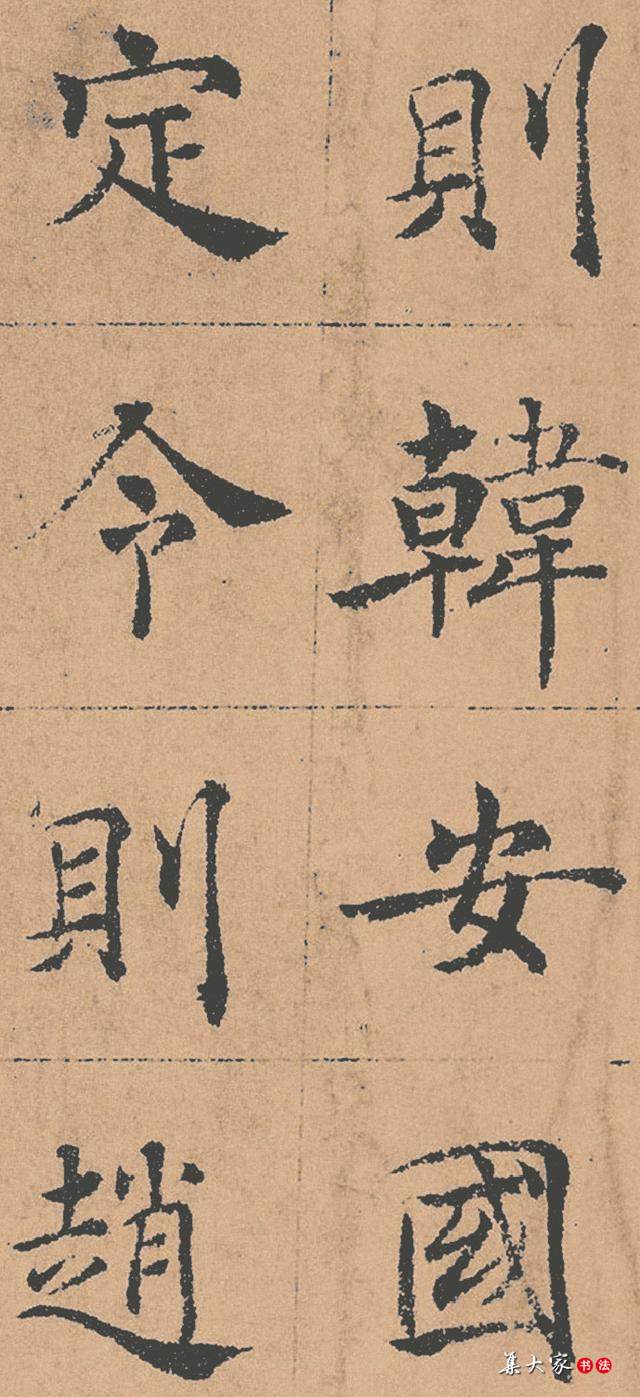 則韓安國
定令則趙
集大家书法